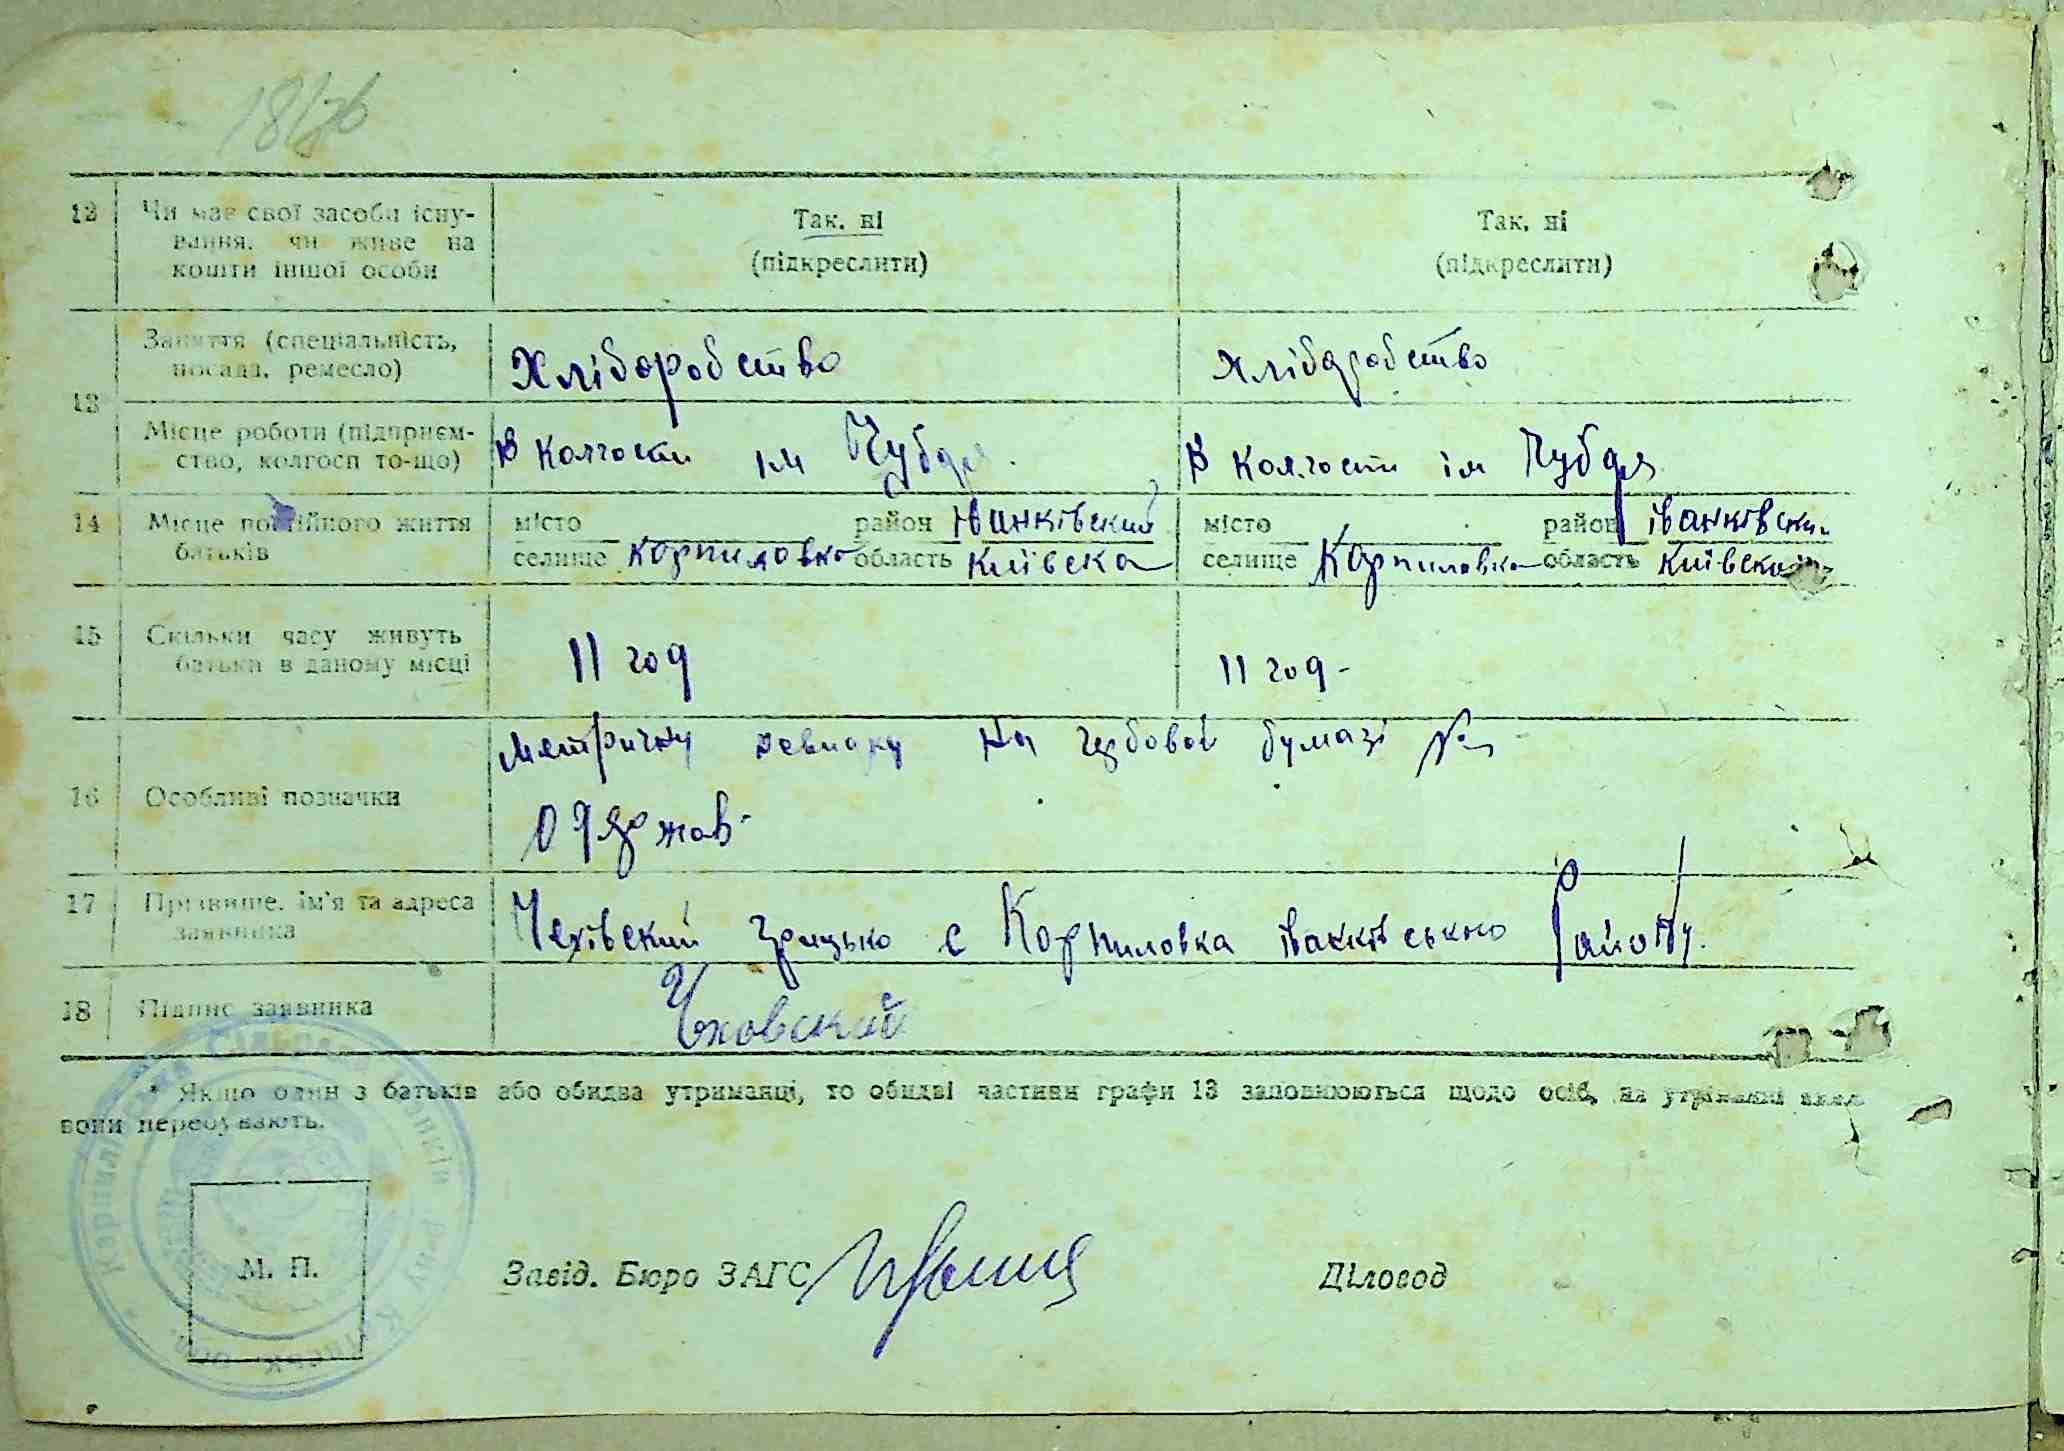 12 Чи має свої засоби існу-
вання, чи живе на
кошти іншої особи
Так, ні
(підкреслити)
Так, ні
(підкреслити)
13
Заняття (спеціальність,
посада, ремесло)
Хліборобство
хліборобство
Місце роботи (підприєм-
ство, колгосп то-що)
В колгоспи ім Чубаря
В колгоспи ім Чубаря
14 Місце постійного життя
батьків
місто район Іванківский
селище Корпиловка область Київска
місто район іванківски
селище Корпиловка область Київска
15 Скільки часу живуть
батьки в даному місці
11 год
11 год-
16 Особливі позначки
Метричну на бумазі №
Одержав-
17 Прізвище, ім'я та адреса
заявника
Чехівский Грицько с Корпиловка іванківського Району.
18 Підпис заявника
Чховский
* Якщо один з батьків або обидва утриманці, то обидві частини графи 13 заповнюються щодо осіб, на утриманні яких
вони перебувають.
М. П.
Завід. Бюро ЗАГС
Діловод